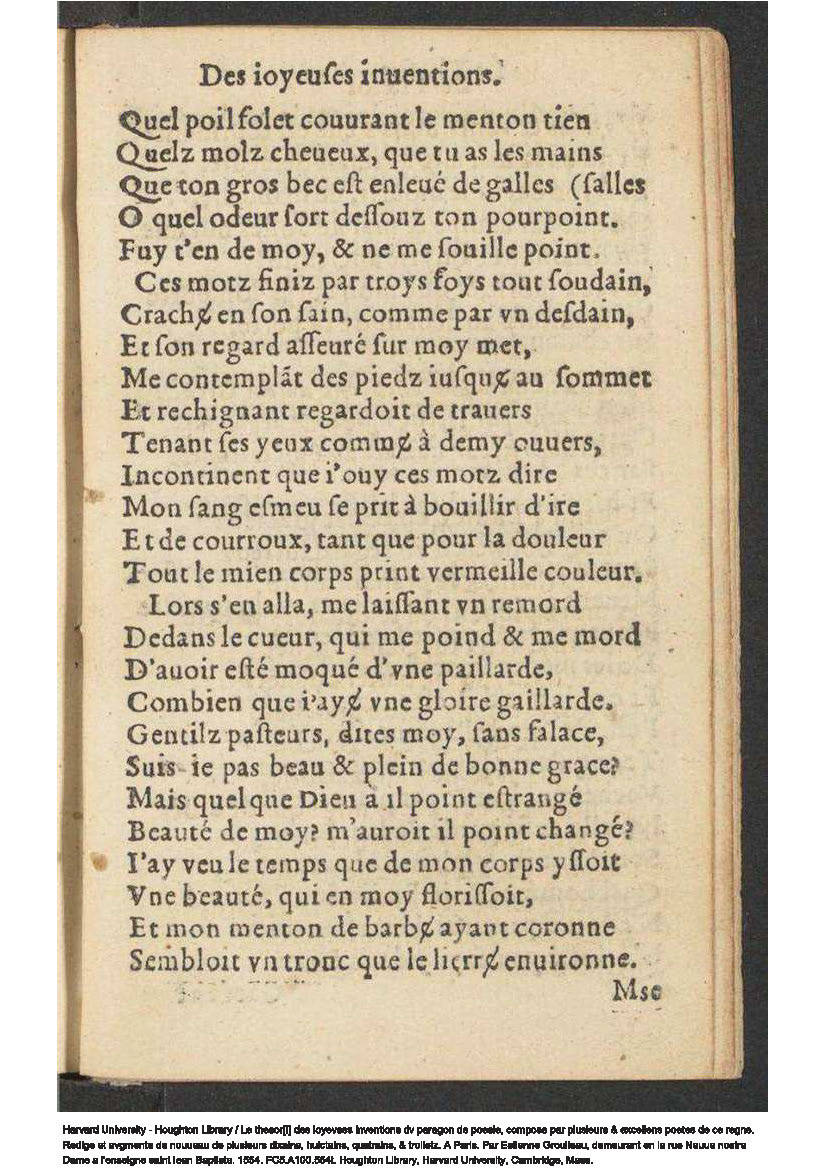 Des ioyeuſes inuentions.
Quel poil folet couurant le menton tien
Quelz molz cheueux, que tu as les mains
Que ton gros bec eſt enleué de galles (ſalles
O quel odeur ſort deſſouz ton pourpoint.
Fuy t'en de moy, & ne me ſouille point.
Ces motz finiz par troys foys tout ſoudain,
Crachɇ en ſon ſain, comme par vn deſdain,
Et ſon regard aſſeuré ſur moy met,
Me contemplãt des piedz iuſquɇ au ſommet
Et rechignant regardoit de trauers
Tenant ſes yeux commɇ à demy ouuers,
Incontinent que i'ouy ces motz dire
Mon ſang eſmeu ſe prit à bouillir d'ire
Et de courroux, tant que pour la douleur
Tout le mien corps print vermeille couleur.
Lors s'en alla, me laiſſant vn remord
Dedans le cueur, qui me poind & me mord
D'auoir eſté moqué d'vne paillarde,
Combien que i'ayɇ vne gloire gaillarde.
Gentilz paſteurs, dites moy, ſans falace,
Suis-ie pas beau & plein de bonne grace?
Mais quelque Dieu à il point eſtrangé
Beauté de moy? m'auroit il point changé?
I'ay veu le temps que de mon corps yſſoit
Vne beauté, qui en moy floriſſoit,
Et mon menton de barbɇ ayant coronne
Sembloit vn tronc que le lierrɇ enuironne.
Mse
Harvard University - Houghton Library / Le thesor[i] des ioyevses inventions dv paragon de poesie, compose par plusieurs & excellens poetes de ce regne.
Redige et avgmente de nouueau de plusieurs dixains, huictains, quatrains, & trolletz. A Paris. Par Estienne Groulleau, demeurant en la rue Neuue nostre
Dame a l'enseigne saint Iean Baptiste. 1554. FC5.A100.554t. Houghton Library, Harvard University, Cambridge, Mass.